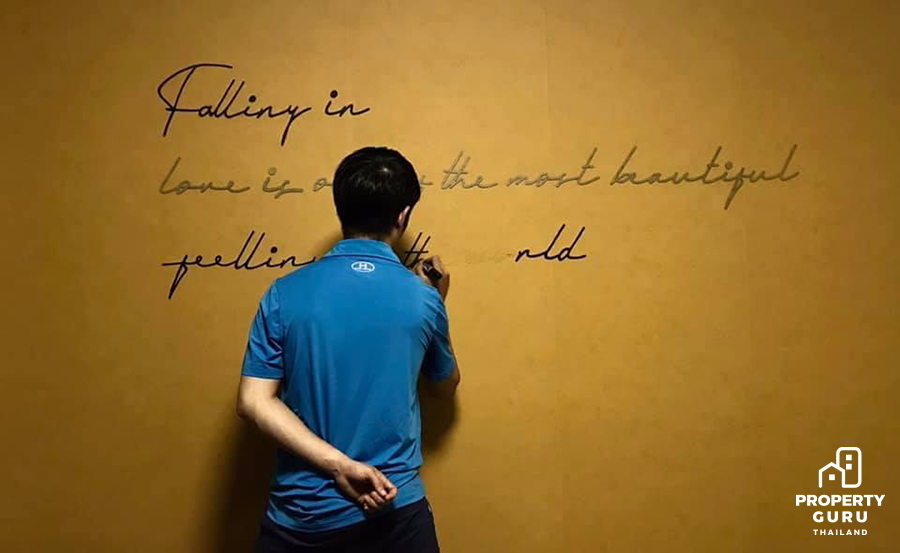 Falling in
love is the most beautiful
feellin rld
PROPERTY
GURU
THAILAND